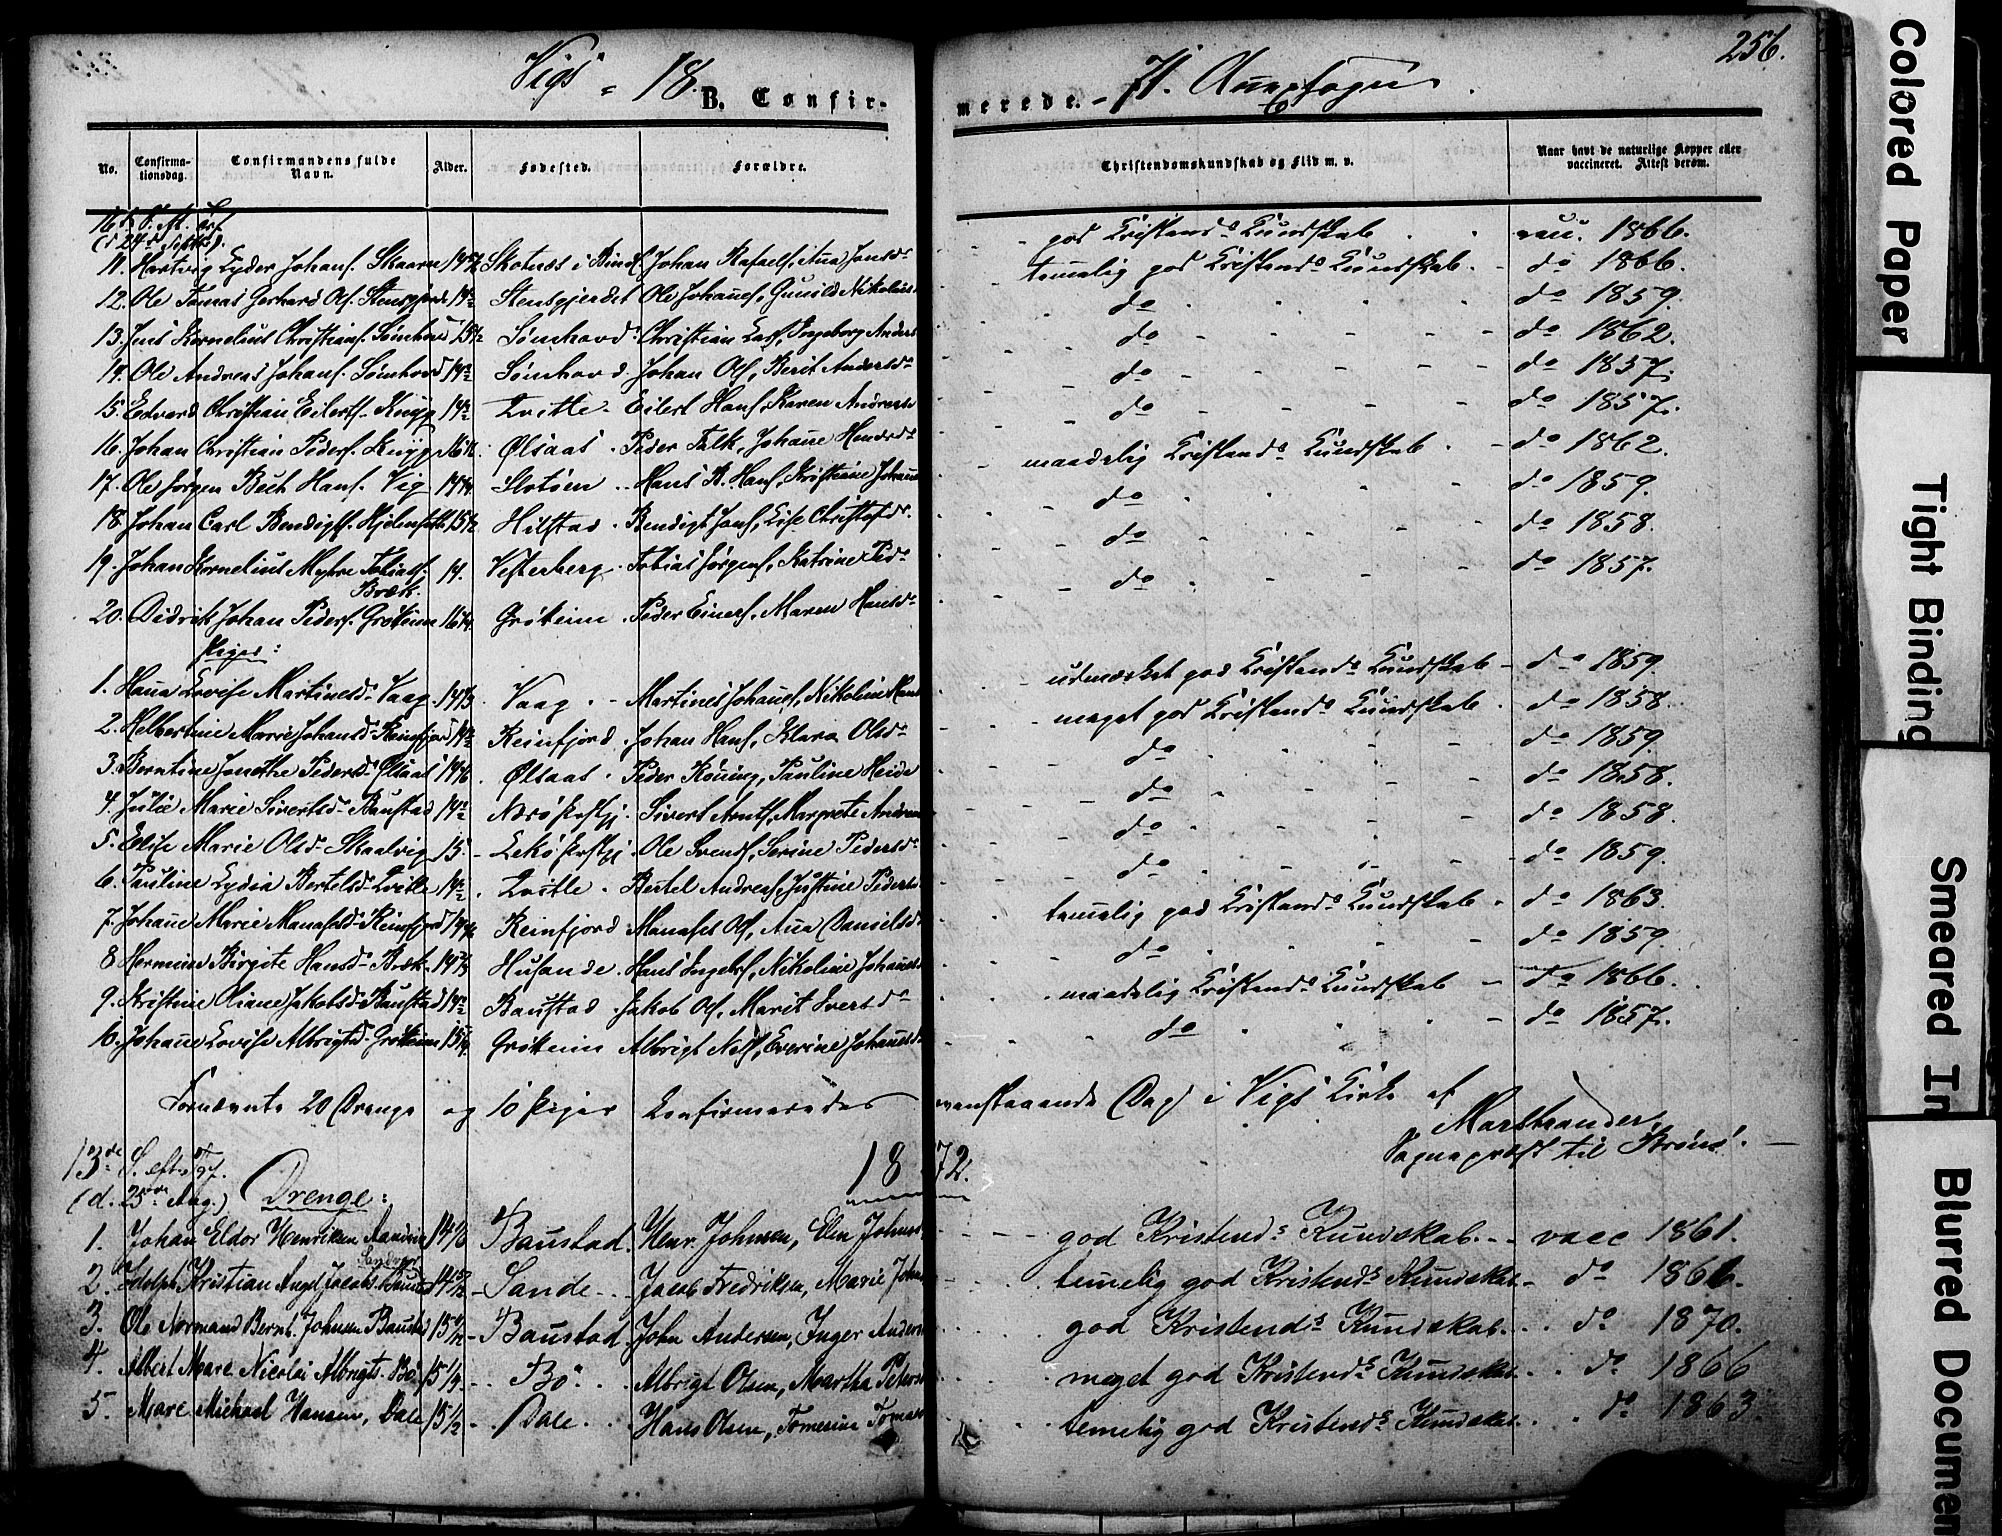 256.
Vigs - 18
B. Confir-
merede. - 71. Annexsogn
No.
Confirma-
tionsdag.
Confirmandens fulde
Navn.
Alder.
Fødested.
Forældre.
Christendomskundskab og Flid m. v.
Naar havt de naturlige Kopper eller
vaccineret. Attest derom.
16de S. e. Tref.
(d 24de Septbr).
11. Hartvig Lyder Johans. Skaarn Skotnæs i Bind. Johan Rafaels, Ana Jonsdr
god Kristends Kundskab vac. 1866.
12. Ole Tomas Gerhard Ols. Stensgjerdet Stensgjerdet Ole Johanes, Gunild Nikolais
temelig god Kristends Kundskab. do 1866.
13. Jens Kornelius Christians. Sømhovd Sømhovd. Christian Lars, Ingeborg Anders
do do 1859.
14. Ole Andreas Johans. Sømhovd Sømhovd. Johan Ols, Berit Andersdr
do do 1862.
15. Edvard Christian Eilerts. Knyp Tvitle. Eilert Hans, Karen Andreas
do do 1857.
16. Johan Christian Peders. Knyp Ølsaas. Peder Falk, Johane Hendr
do do 1857.
17. Ole Jørgen Bech Hans. Vig Slotøen Hans B. Hans, Kristine Johan
maadelig Kristends Kundskab. do 1862.
18. Johan Carl Bendigts. Hjelmseth 15 1/2 Hilstad. Bendigt Jons, Lise Christofsdr.
do do 1859.
19. Johan Kornelius Myhre Tobias. 14. Vesterberg. Tobias Jørgens, Katrine Pedr
Bræk.
do do 1858.
20. Didrik Johan Peders. Grøteim 16 1/4. Grøteim. Peder Einers, Maren Hansdr
do do 1857.
Piger:
1. Hana Lovise Martinesdr Vaag Vaag. Martines Johanes, Nikoline
udmærket god Kristends Kundskab do 1859.
2. Helbertine Marie Johansdr Reinfjord Reinfjord. Johan Hans, Klara Olsdr
meget god Kristends Kundskab. do 1858.
3. Berntine Jonette Pedersdr Ølsaas Ølsaas. Peder Køning, Pauline Heide
do do 1859.
4. Julie Marie Sivertsdr Baustad Nærø Prstgj. Sivert Arnts, Margrete
do do 1858.
5. Elise Marie Olsd Skaalvig 15. Lekø Prstgj. Ole Svends, Serine Pedersdr
do do 1858.
6. Pauline Lydia Bertelsd. Tvitle Tvitle. Bertel Andreas, Justine Peders
do do 1859.
7. Johane Marie Manasesd. Reinfjord Reinfjord Manases Ols, Ana Danielsd
temelig god Kristends Kundskab do 1863.
8 Hermine Birgite Hansd. Bræk. Husande. Hans Ingebr, Nikoline Johanes
do do 1859.
9. Kristine Oliane Jakobsd. Baustad Baustad. Jakob Ols, Marit Iversdr
maadelig Kristends Kundskab do 1866.
10. Johane Lovise Albrigtsd. Grøteim Grøteim Albrigt Nils, Everine Johanes
do do 1857.
Fornævnte 20 Drenge og 10 Piger Konfirmeredes ovenstaaende Dag i Vigs Kirke af
Marstrander,
Sogneprest til Brønø.
13de S. eft. Tref. 1872.
(d. 25de Aug.) Drenge:
1. Johan Eldor Henriksen Baustad. Henr. Johnsen, Elen Johns
god Kristends Kundskab. vacc 1861.
2. Adolph Kristian Angel Jacobs. Sande Jacob Fredriksen, Marie John
temelig god Kristends Kundskab do 1861.
3. Ole Normand Bernt. Johnsen Baustad Baustad. John Andersen, Inger Anders
god Kristends Kundskab. do 1870.
4. Albert Marc Nicolai Albrigts. Bø 15 1/2 Bø Albrigt Olsen, Martha Peters
meget god Kristends Kundskab. do 1866
5. Marc Michael Hansen, Dale 15 1/2 Dale. Hans Olsen, Tomesine Tomas
temelig god Kristends Kundskab. do 1863.
Colored Paper
Tight Binding
Smeared In
Blurred Documen